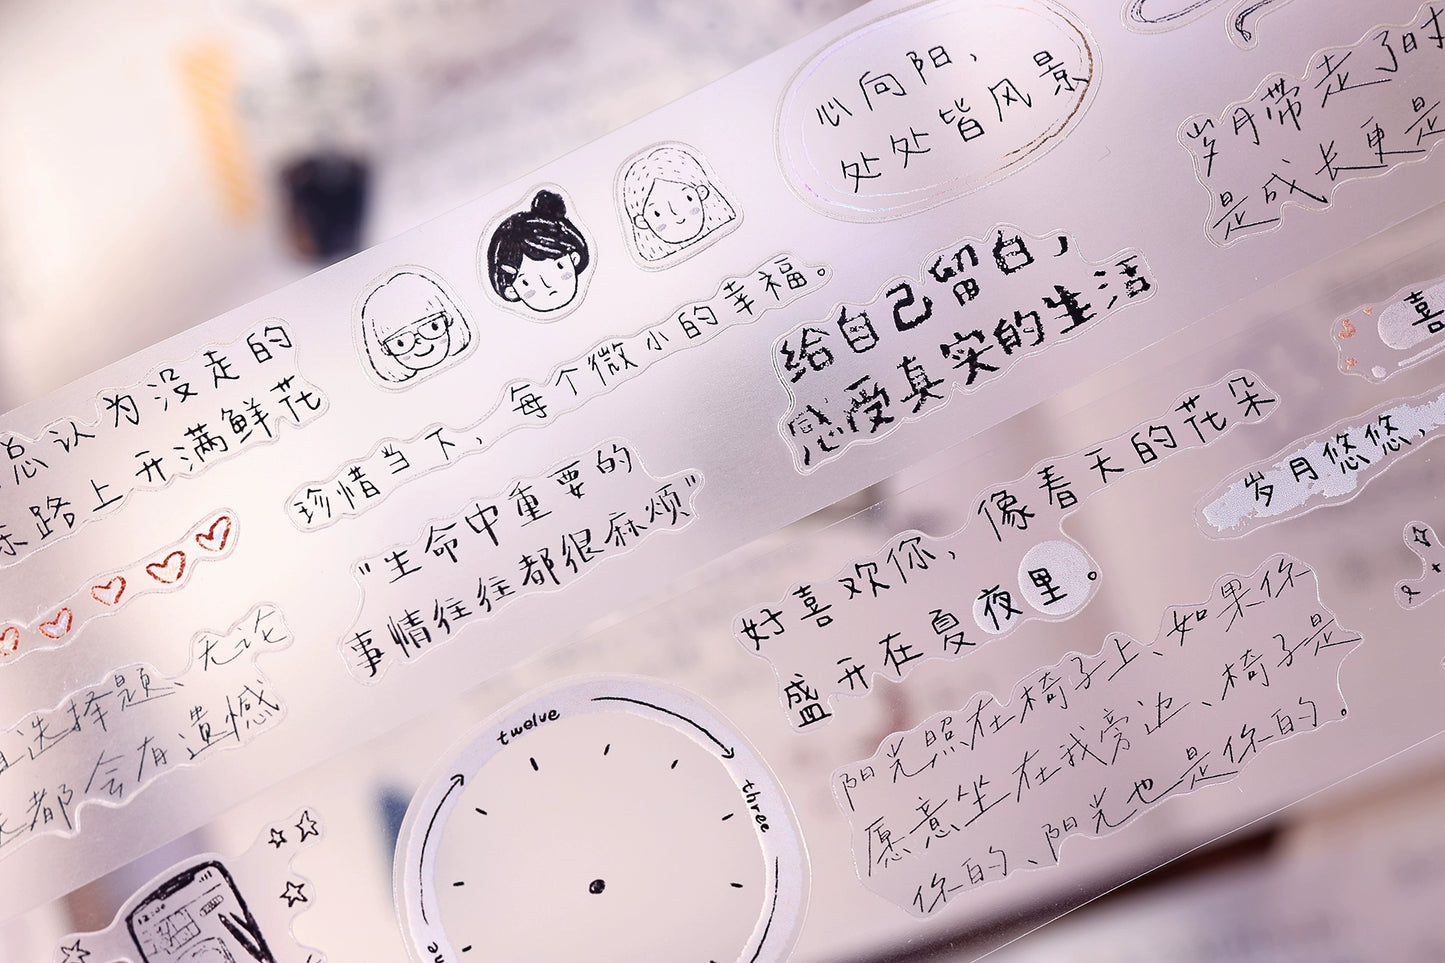 心向阳，
处处皆风景
岁月带走了时
是成长更是
总认为没走的
路上开满鲜花
珍惜当下，每个微小的幸福。
给自己留白，
感受真实的生活
"生命中重要的
事情往往都很麻烦"
喜
岁月悠悠，
选择题、无论
都会有遗憾
好喜欢你，像春天的花朵
盛开在夏夜里。
阳光照在椅子上、如果你
愿意坐在我旁边、椅子是
你的、阳光也是你的.
twelve
three
12:00